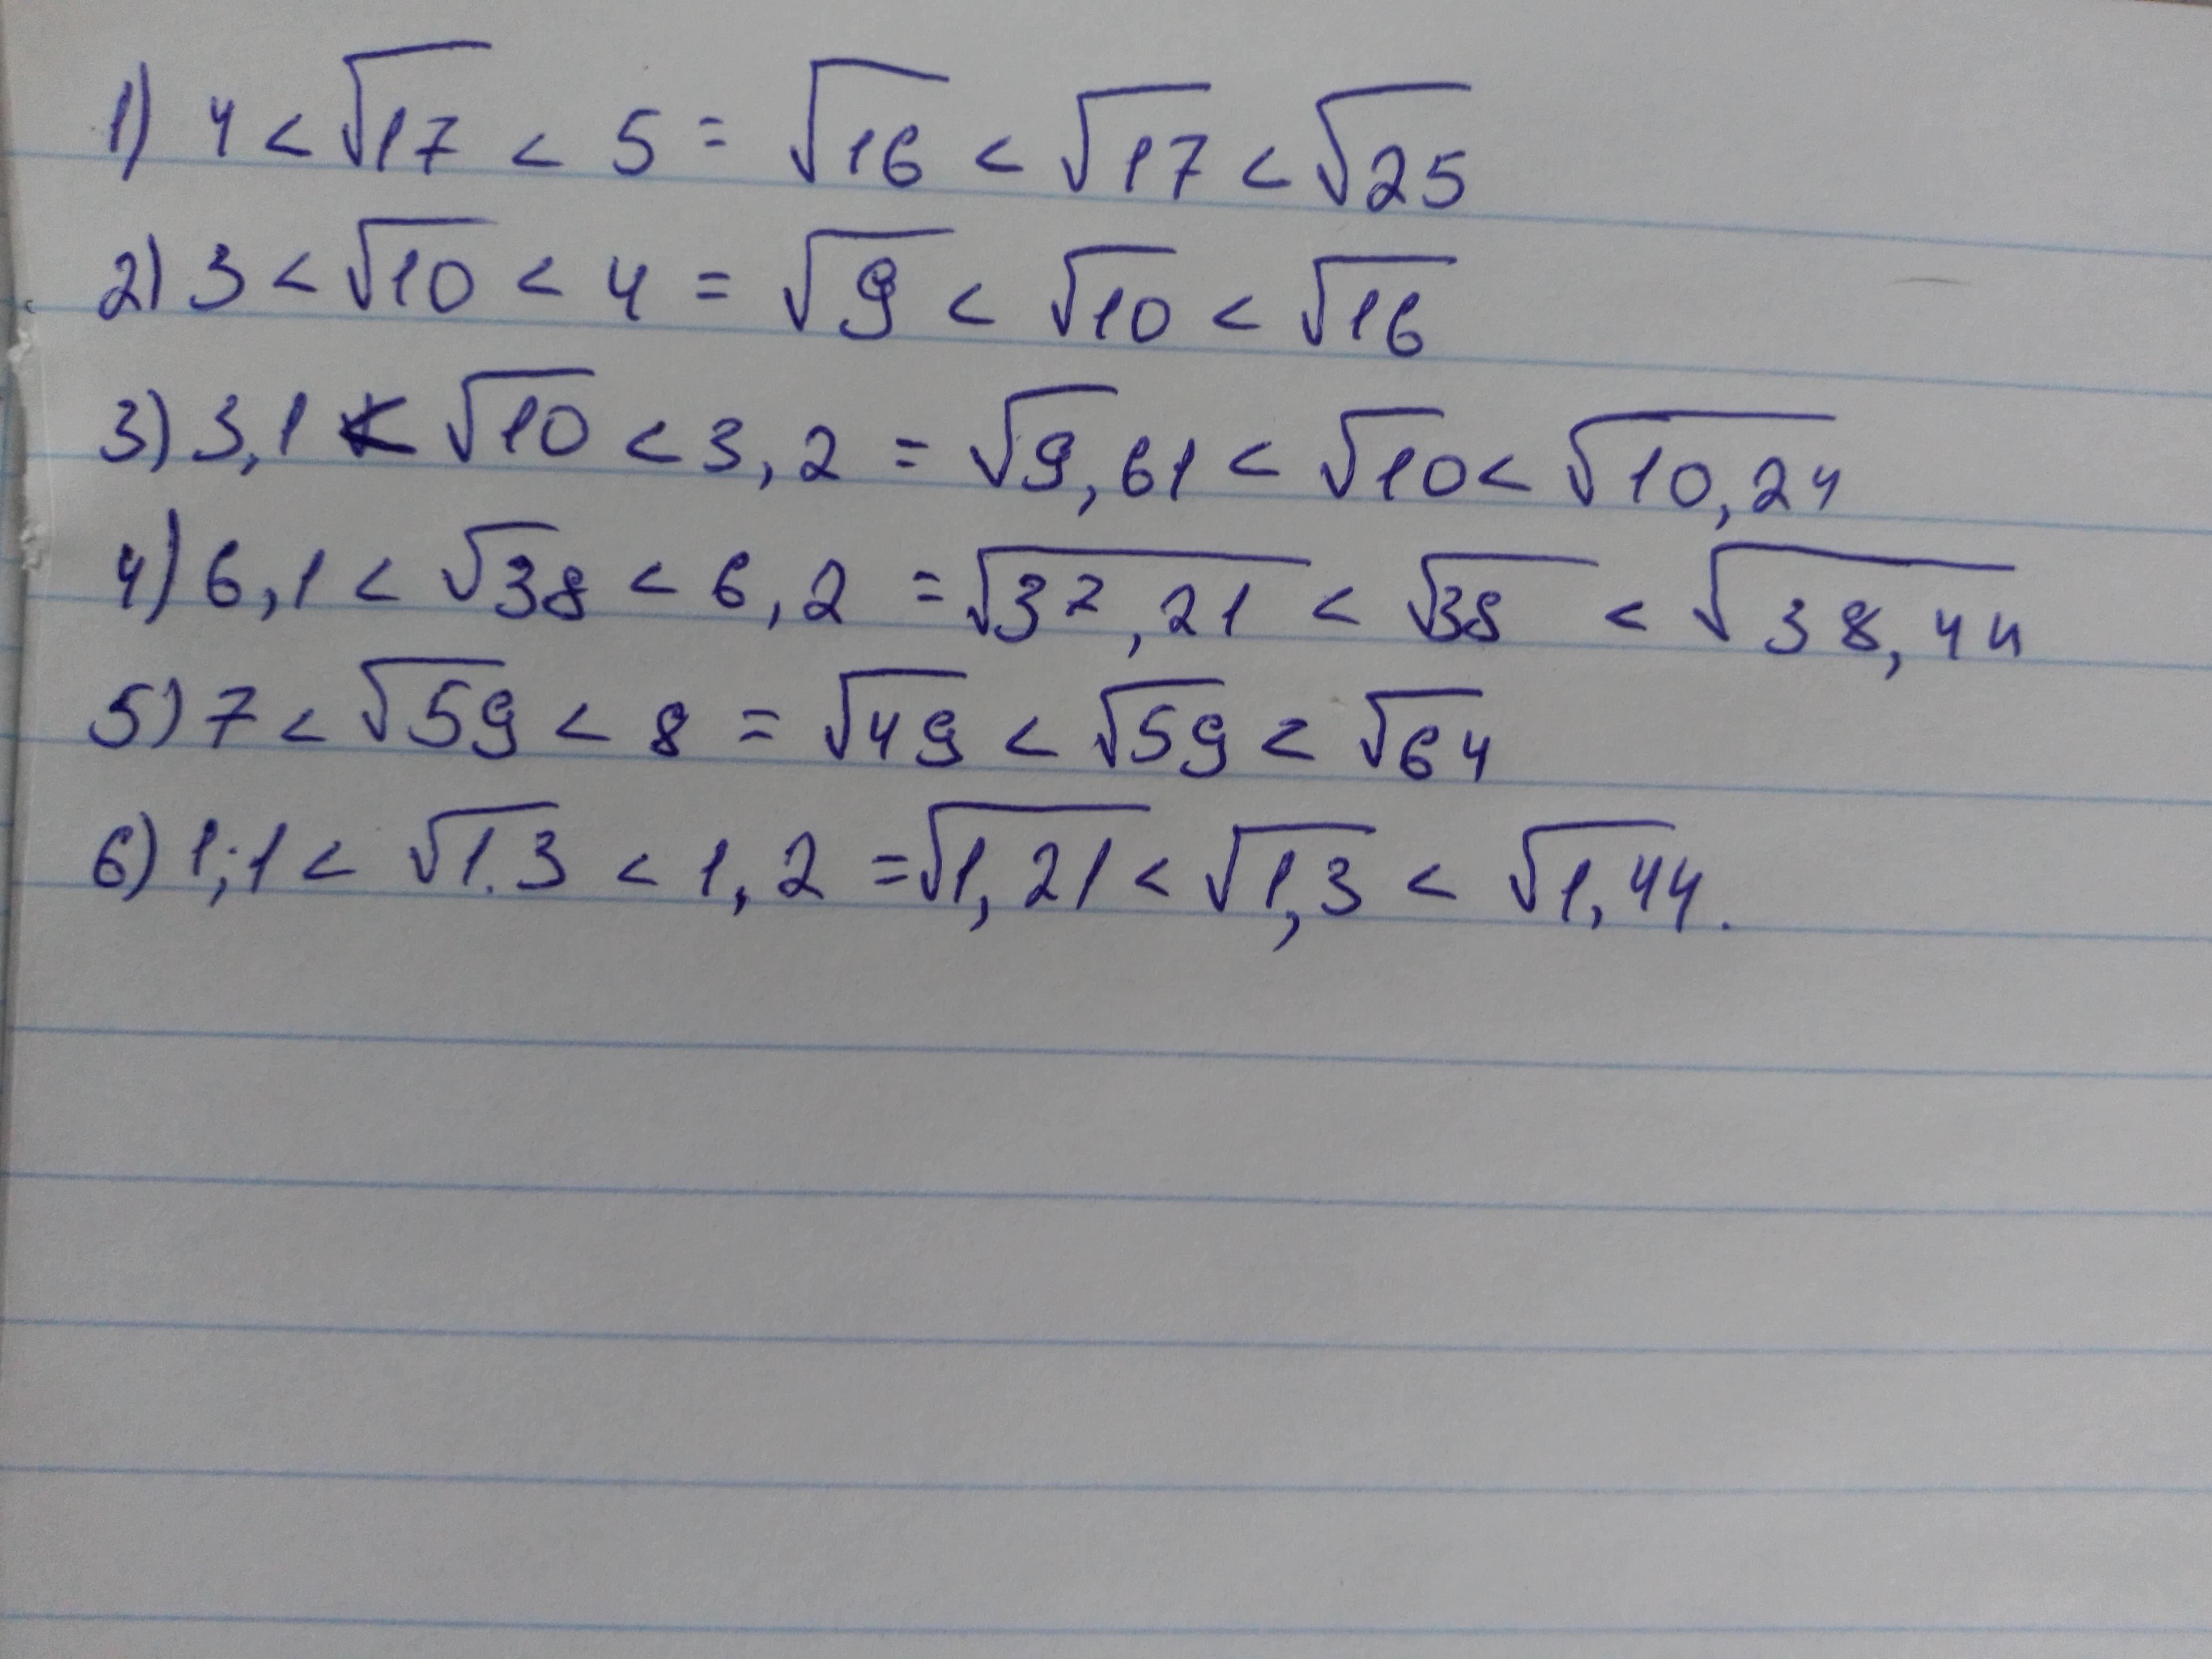 1) 4 < √17 < 5 = √16 < √17 < √25
2) 3 < √10 < 4 = √9 < √10 < √16
3) 3,1 < √10 < 3,2 = √9,61 < √10 < √10,24
4) 6,1 < √38 < 6,2 = √37,21 < √38 < √38,44
5) 7 < √59 < 8 = √49 < √59 < √64
6) 1,1 < √1.3 < 1,2 = √1,21 < √1,3 < √1,44.